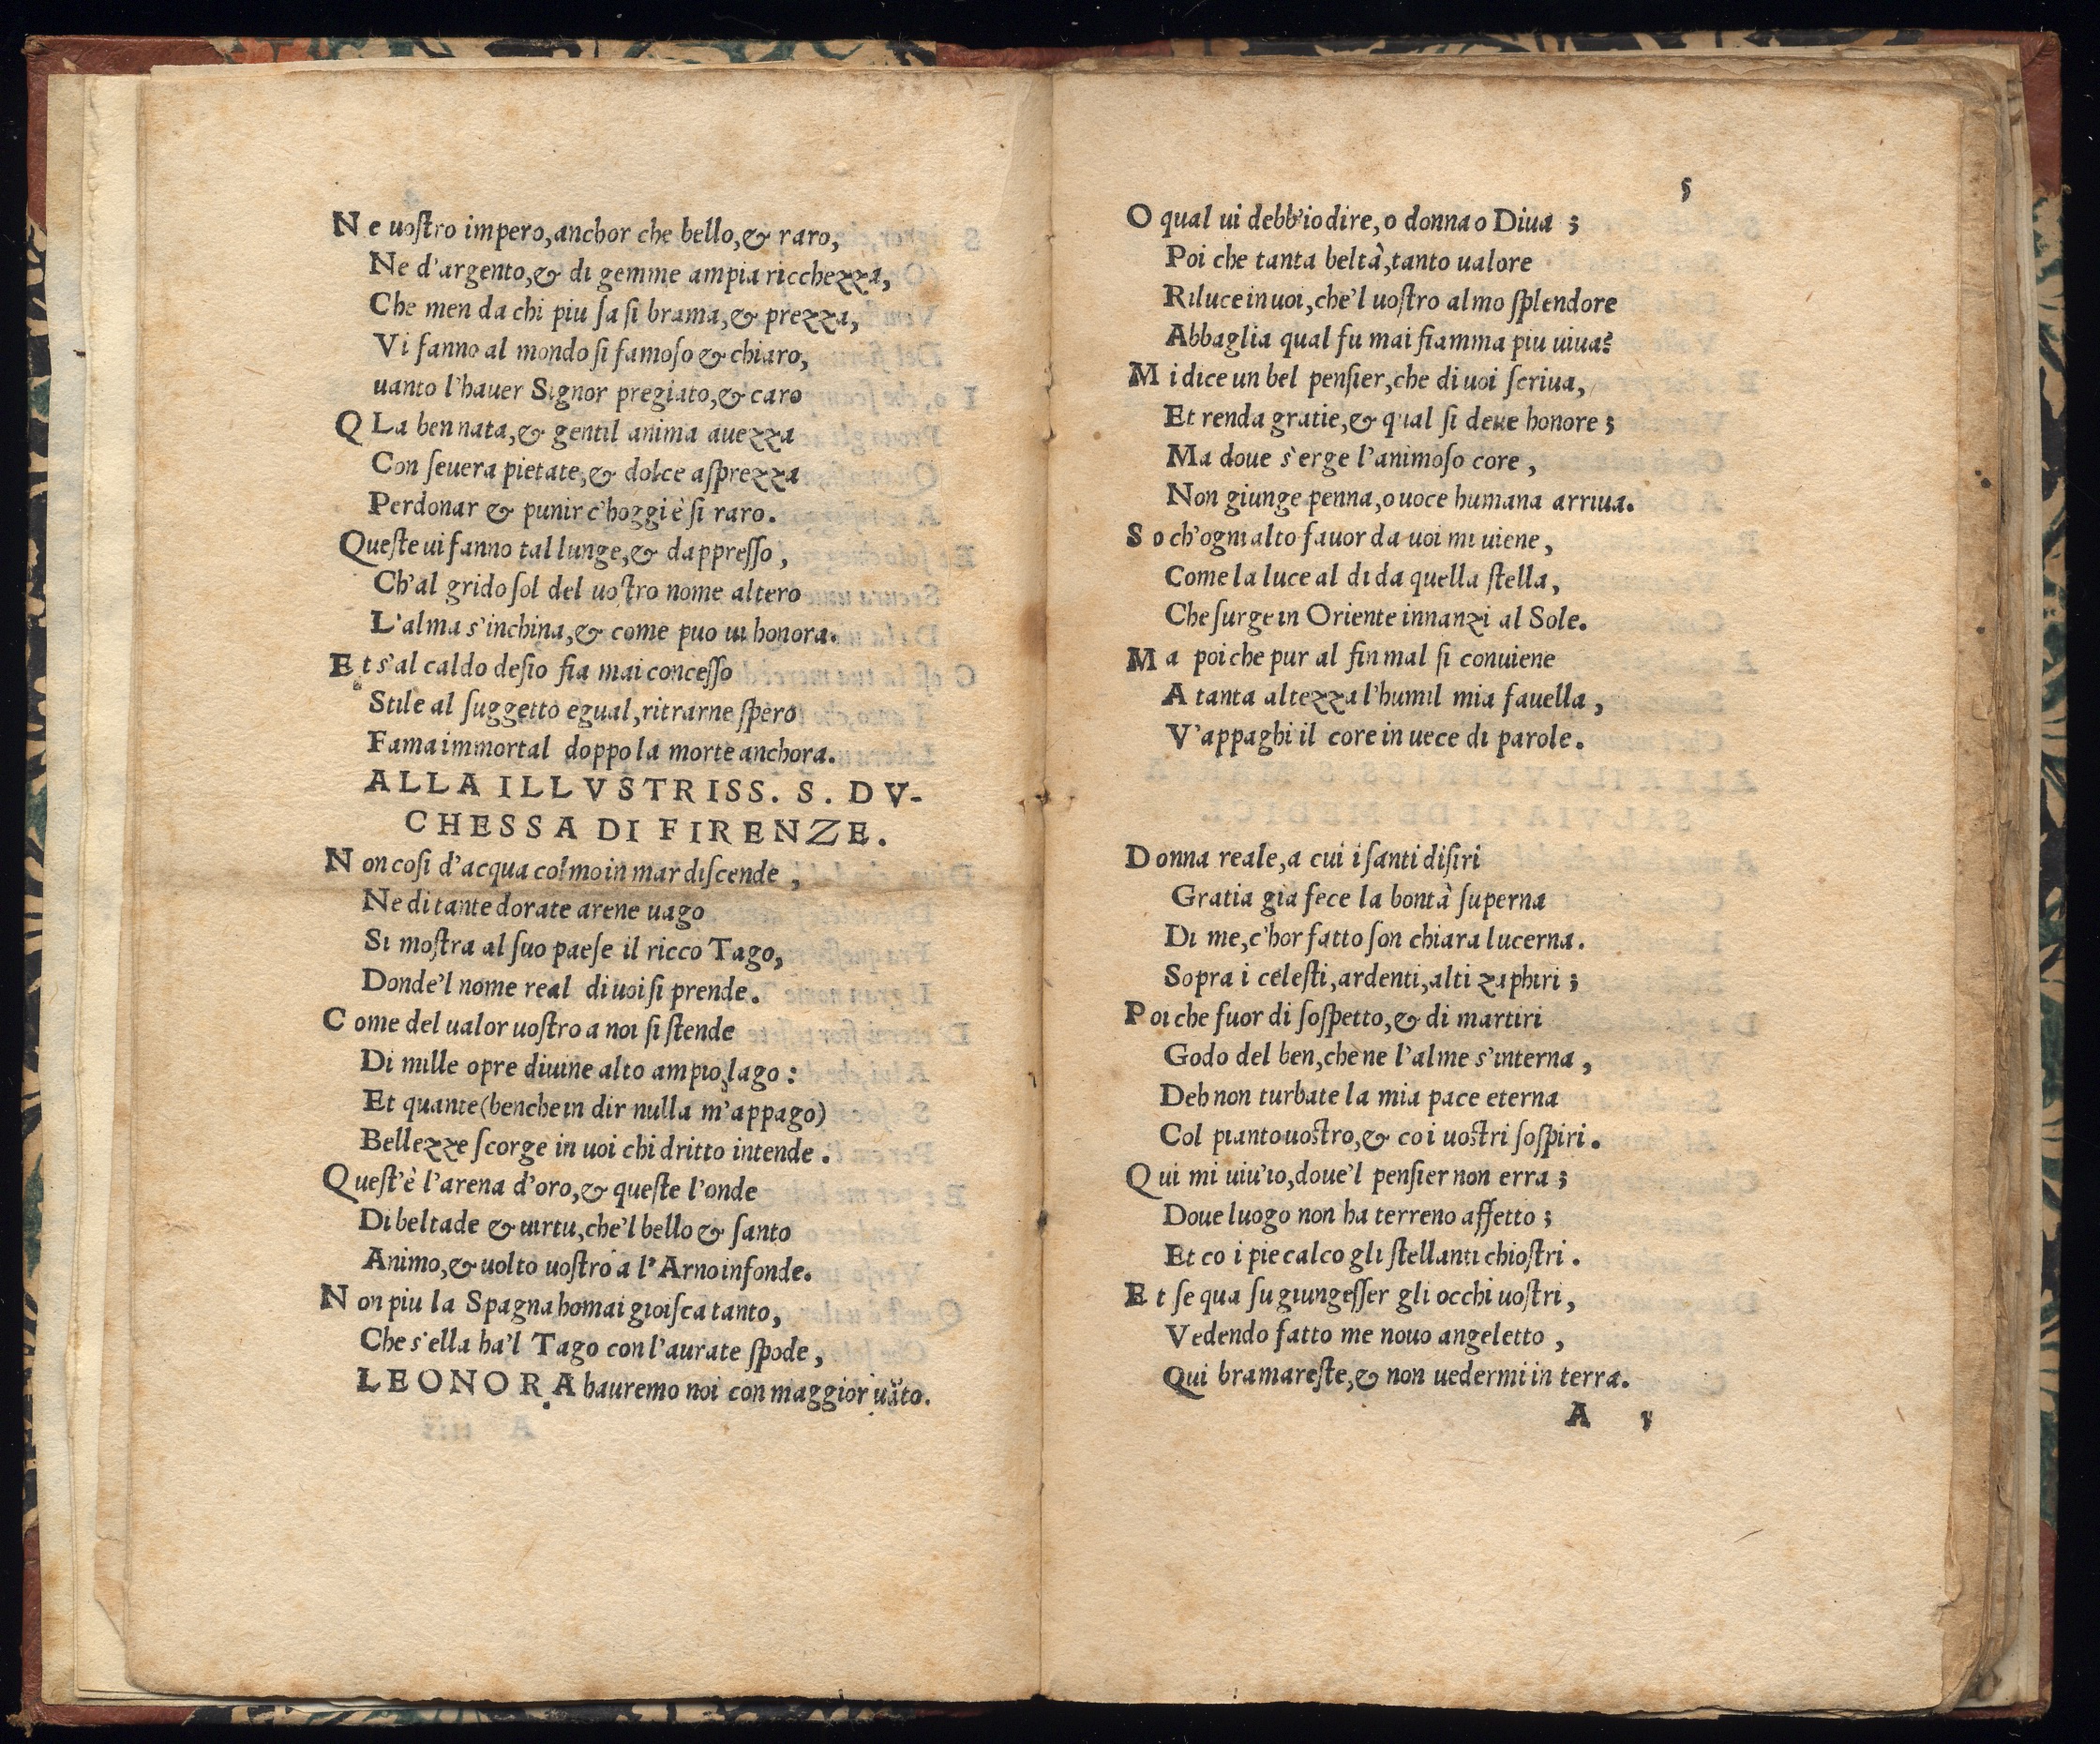 Ne uoſtro impero, anchor che bello, & raro,
Ne d'argento, & di gemme ampia ricchezza,
Che men da chi piu ſa ſi brama, & prezza,
Vi fanno al mondo ſi famoſo & chiaro,
uanto l'hauer Signor pregiato, & caro
Q La ben nata, & gentil anima auezza
Con ſeuera pietate, & dolce aſprezza
Perdonar & punir c'hoggi è ſi raro.
Queſte ui fanno tal lunge, & dappreſſo,
Ch'al grido ſol del uoſtro nome altero
L'alma s'inchina, & come puo ui honora.
Et s'al caldo deſio fia mai conceſſo
Stile al ſuggetto egual, ritrarne ſpero
Fama immortal doppo la morte anchora.
ALLA ILLVSTRISS. S. DV-
CHESSA DI FIRENZE.
Non coſi d'acqua colmo in mar diſcende,
Ne di tante dorate arene uago
Si moſtra al ſuo paeſe il ricco Tago,
Donde'l nome real di uoi ſi prende.
Come del ualor uoſtro a noi ſi ſtende
Di mille opre diuine alto ampio lago:
Et quante (benche in dir nulla m'appago)
Bellezze ſcorge in uoi chi dritto intende.
Queſt'è l'arena d'oro, & queſte l'onde
Di beltade & uirtu, che'l bello & ſanto
Animo, & uolto uoſtro a l'Arno infonde.
Non piu la Spagna homai gioiſca tanto,
Che s'ella ha'l Tago con l'aurate ſpode,
LEONORA hauremo noi con maggior uāto.
5
O qual ui debb'io dire, o donna o Diua;
Poi che tanta beltà, tanto ualore
Riluce in uoi, che'l uoſtro almo ſplendore
Abbaglia qual fu mai fiamma piu uiua?
Mi dice un bel penſier, che di uoi ſcriua,
Et renda gratie, & qual ſi deue honore;
Ma doue s'erge l'animoſo core,
Non giunge penna, o uoce humana arriua.
So ch'ogni alto fauor da uoi mi uiene,
Come la luce al di da quella ſtella,
Che ſurge in Oriente innanzi al Sole.
Ma poi che pur al fin mal ſi conuiene
A tanta altezza l'humil mia fauella,
V'appaghi il core in uece di parole.
Donna reale, a cui i ſanti diſiri
Gratia gia fece la bontà ſuperna
Di me, c'hor fatto ſon chiara lucerna.
Sopra i celeſti, ardenti, alti zaphiri;
Poi che fuor di ſoſpetto, & di martiri
Godo del ben, che ne l'alme s'interna,
Deh non turbate la mia pace eterna
Col pianto uoſtro, & co i uoſtri ſoſpiri.
Qui mi uiu'io, doue'l penſier non erra;
Doue luogo non ha terreno affetto;
Et co i pie calco gli ſtellanti chioſtri.
Et ſe qua ſu giungeſſer gli occhi uoſtri,
Vedendo fatto me nouo angeletto,
Qui bramareſte, & non uedermi in terra.
A v